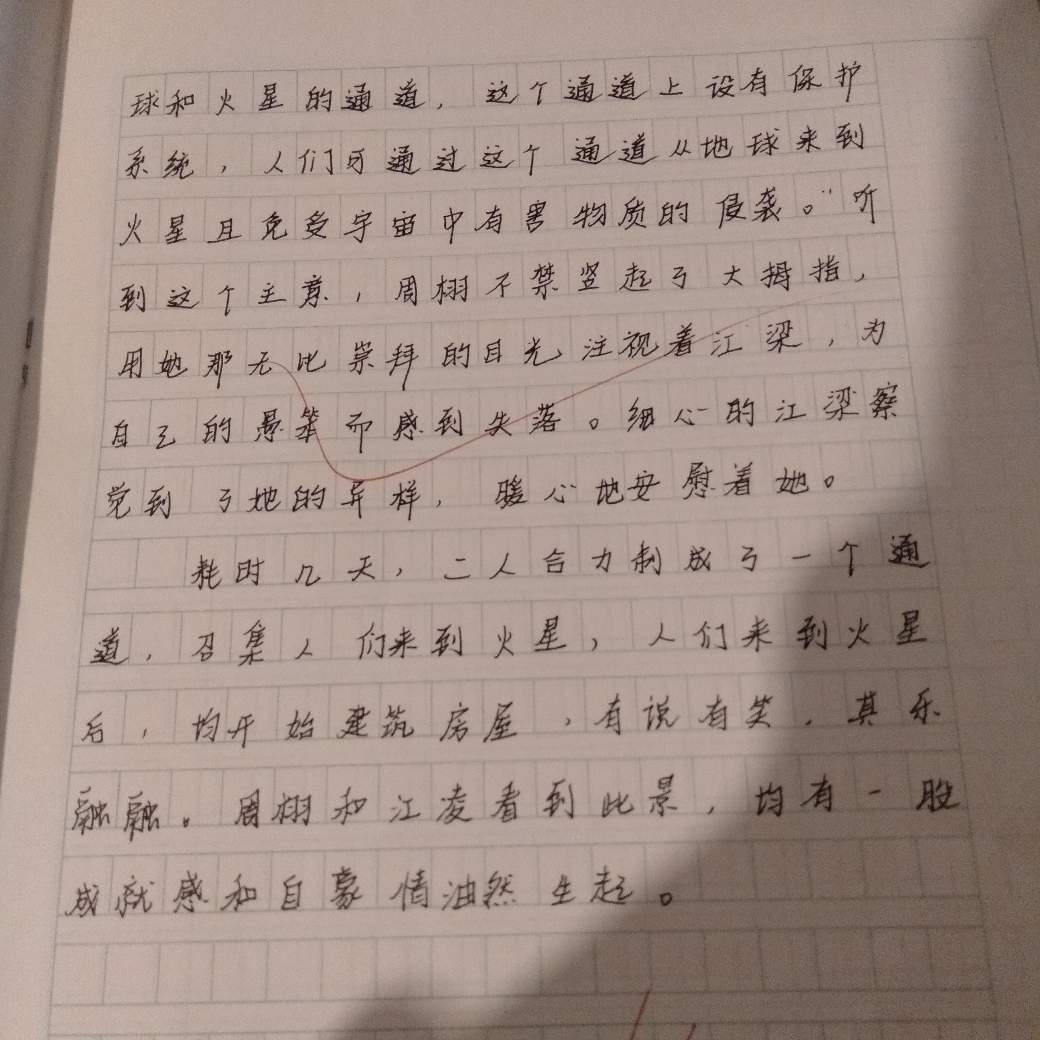 球和火星的通道，这个通道上设有保护
系统，人们可通过这个通道从地球来到
火星且免受宇宙中有害物质的侵袭。”听
到这个主意，周栩不禁竖起了大拇指，
用她那无比崇拜的目光注视着江梁，为
自己的愚笨而感到失落。细心的江梁察
觉到了她的异样，暖心地安慰着她。
耗时几天，二人合力制成了一个通
道，召集人们来到火星，人们来到火星
后，均开始建筑房屋，有说有笑，其乐
融融。周栩和江凌看到此景，均有一股
成就感和自豪情油然生起。